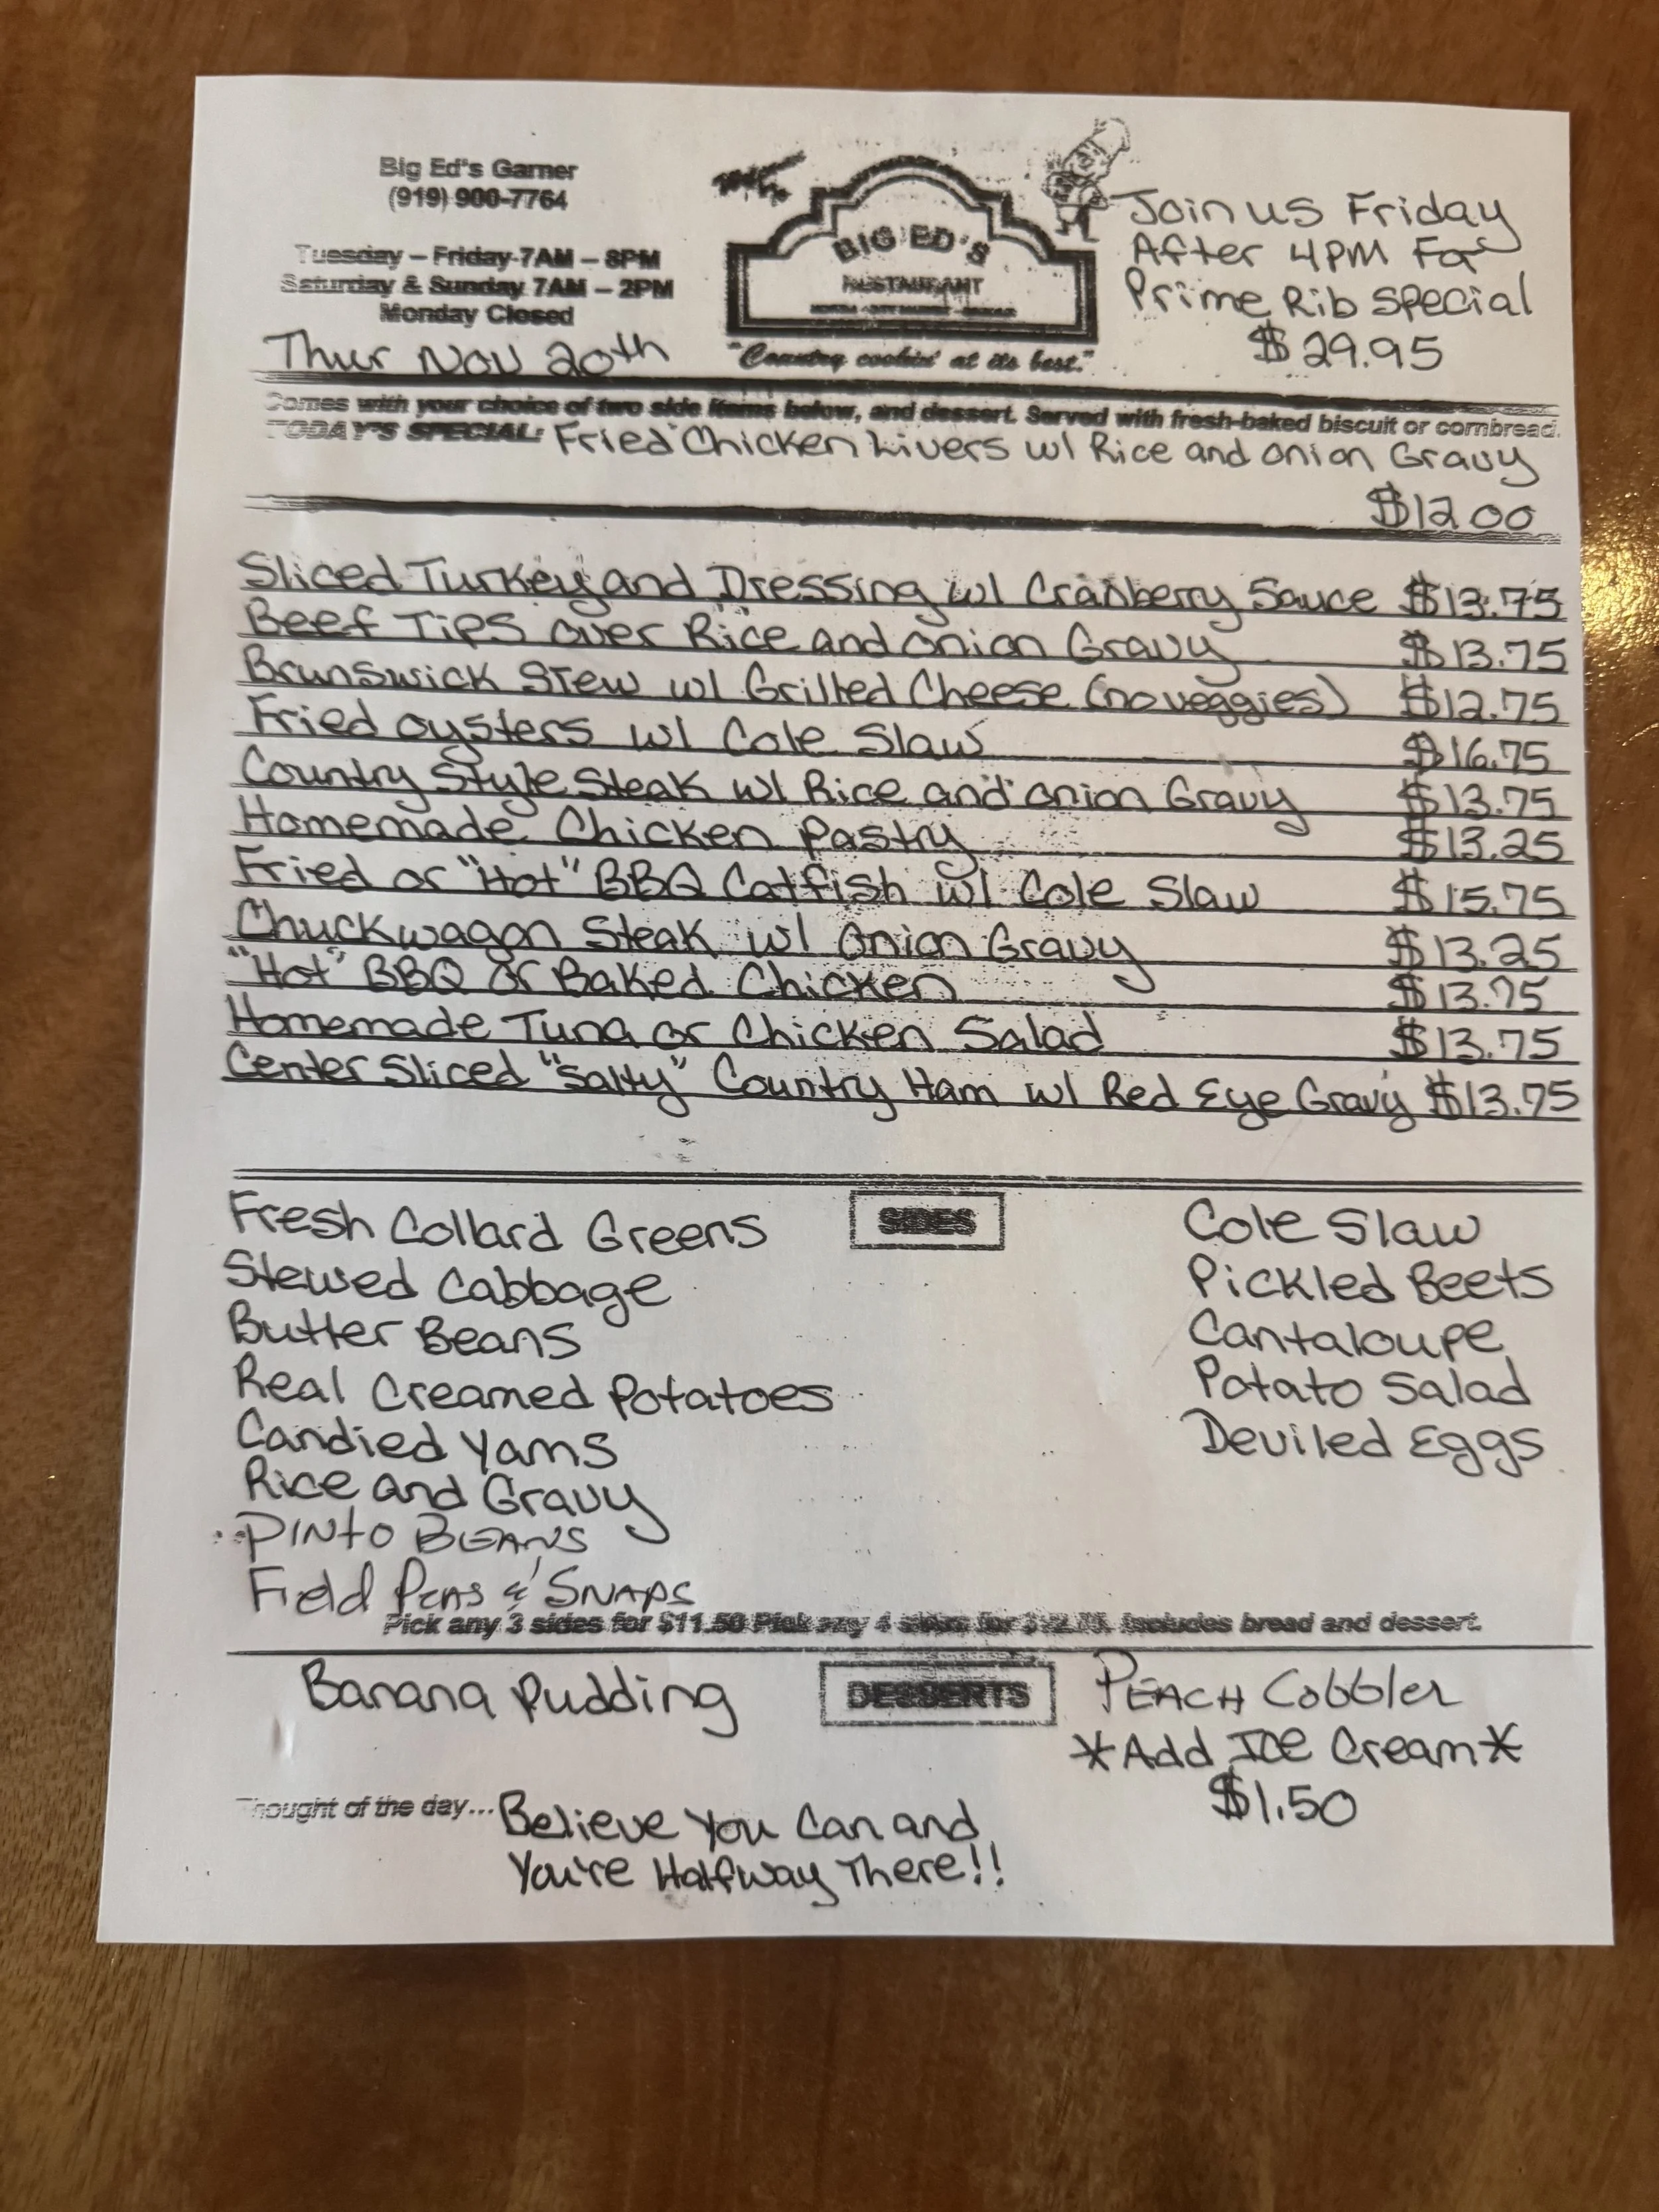 Big Ed's Garner
(919) 900-7764
Tuesday – Friday 7AM – 8PM
Saturday & Sunday 7AM – 2PM
Monday Closed
Thur Nov 20th
BIG ED'S
RESTAURANT
"Country cookin' at its best."
Join us Friday
After 4PM For
Prime Rib Special
$29.95
Comes with your choice of two side items below, and dessert. Served with fresh-baked biscuit or cornbread.
TODAY'S SPECIAL: Fried Chicken Livers w/ Rice and Onion Gravy
$12.00
Sliced Turkey and Dressing w/ Cranberry Sauce $13.75
Beef Tips over Rice and Onion Gravy $13.75
Brunswick Stew w/ Grilled Cheese (no veggies) $12.75
Fried oysters w/ Cole Slaw $16.75
Country Style Steak w/ Rice and onion Gravy $13.75
Homemade Chicken Pastry $13.25
Fried or "Hot" BBQ Catfish w/ Cole Slaw $15.75
Chuckwagon Steak w/ Onion Gravy $13.25
"Hot" BBQ or Baked Chicken $13.75
Homemade Tuna or Chicken Salad $13.75
Center Sliced "Salty" Country Ham w/ Red Eye Gravy $13.75
SIDES
Fresh Collard Greens
Stewed Cabbage
Butter Beans
Real Creamed Potatoes
Candied Yams
Rice and Gravy
PINTO BEANS
Field Peas & SNAPS
Cole Slaw
Pickled Beets
Cantaloupe
Potato Salad
Deviled Eggs
Pick any 3 sides for $11.50 Pick any 4 sides for Includes bread and dessert.
DESSERTS
Banana Pudding
PEACH Cobbler
*Add Ice Cream*
$1.50
Thought of the day... Believe You Can and
You're Halfway There!!